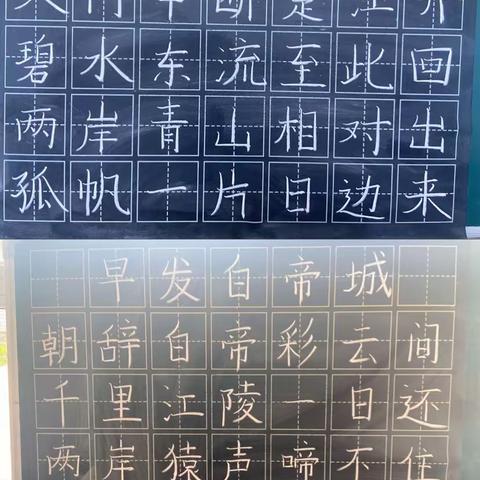 天门中断楚江开
碧水东流至此回
两岸青山相对出
孤帆一片日边来
早发白帝城
朝辞白帝彩云间
千里江陵一日还
两岸猿声啼不住